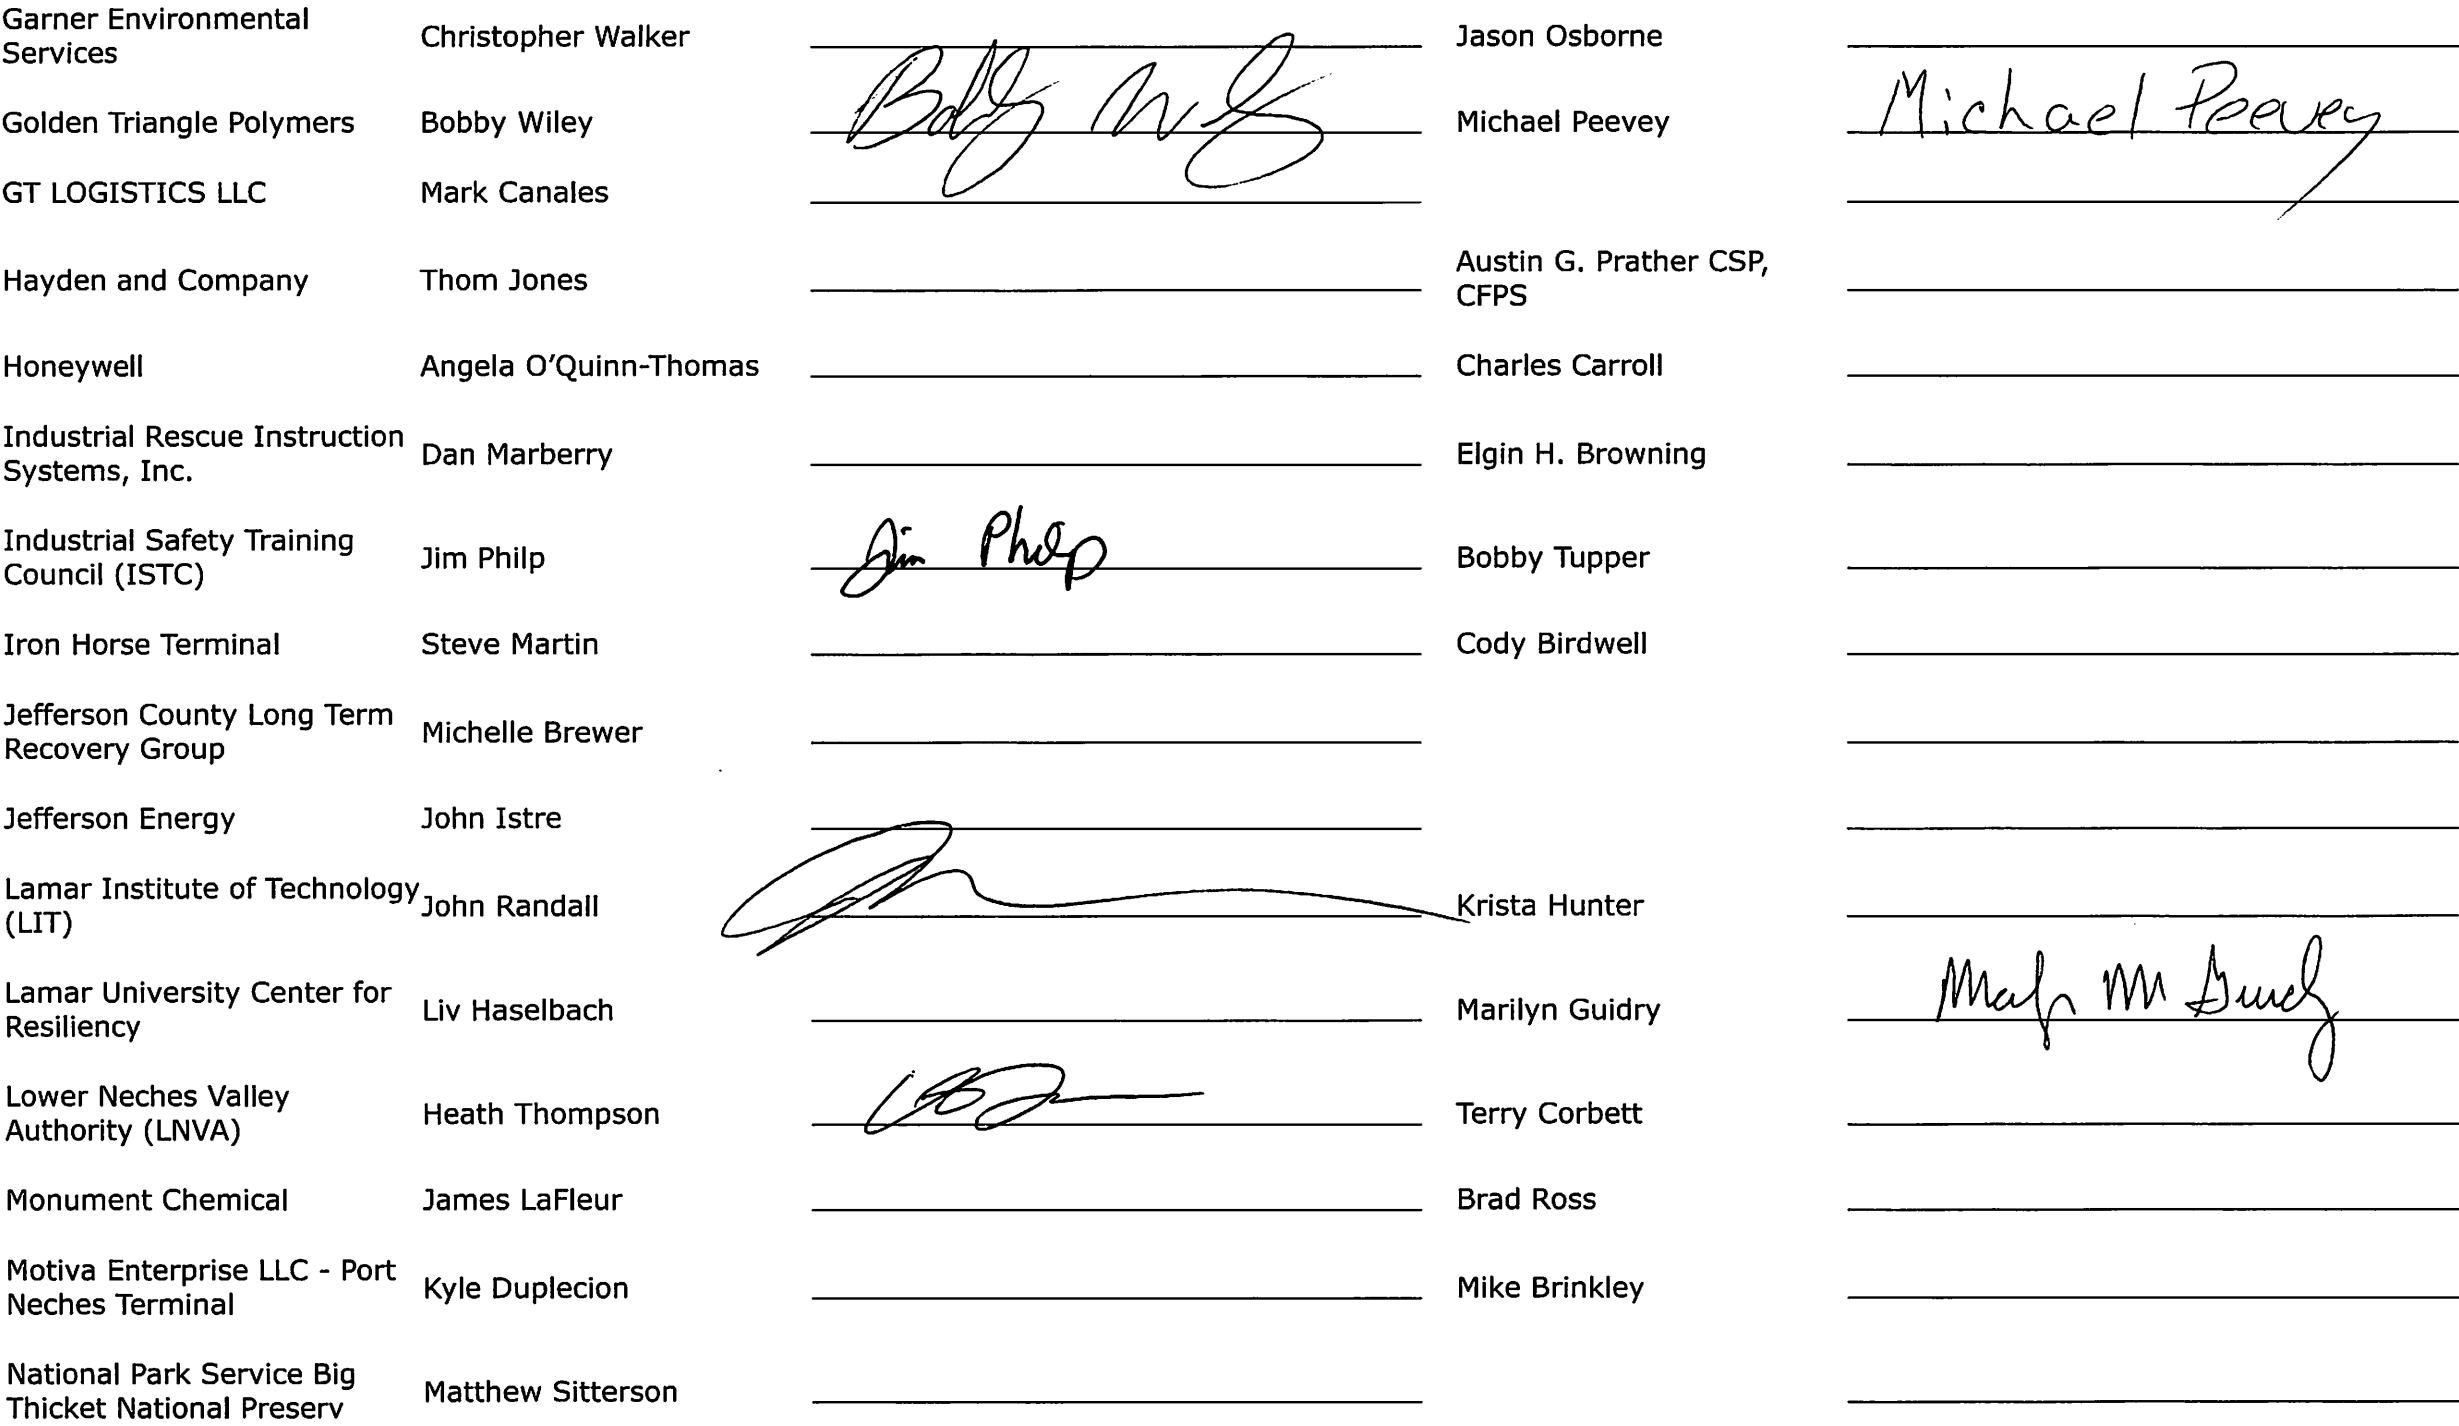 Garner Environmental
Services
Christopher Walker
Jason Osborne
Golden Triangle Polymers
Bobby Wiley
Bobby Wiley
Michael Peevey
Michael Peevey
GT LOGISTICS LLC
Mark Canales
Hayden and Company
Thom Jones
Austin G. Prather CSP,
CFPS
Honeywell
Angela O'Quinn-Thomas
Charles Carroll
Industrial Rescue Instruction
Systems, Inc.
Dan Marberry
Elgin H. Browning
Industrial Safety Training
Council (ISTC)
Jim Philp
Jim Philp
Bobby Tupper
Iron Horse Terminal
Steve Martin
Cody Birdwell
Jefferson County Long Term
Recovery Group
Michelle Brewer
Jefferson Energy
John Istre
Lamar Institute of Technology
(LIT)
John Randall
Krista Hunter
Lamar University Center for
Resiliency
Liv Haselbach
Marilyn Guidry
Lower Neches Valley
Authority (LNVA)
Heath Thompson
Terry Corbett
Monument Chemical
James LaFleur
Brad Ross
Motiva Enterprise LLC - Port
Neches Terminal
Kyle Duplecion
Mike Brinkley
National Park Service Big
Thicket National Preserv
Matthew Sitterson